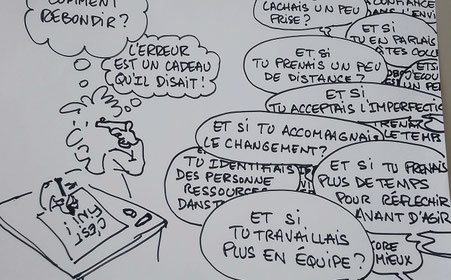 COMMENT
REBONDIR ?
L'ERREUR
EST UN CADEAU
QU'IL DISAIT !
C'EST
FINI
CACHAIS UN PEU
PRISE ?
CONFIANCE
DANS L'ENVI
ET SI
TU EN PARLAIS
TES COLL
ET SI
TU PRENAIS UN PEU
DE DISTANCE ?
ET SI
ÉCOU
UN PE
ET SI
TU ACCEPTAIS L'IMPERFECTI
ET SI TU ACCOMPAGNAIS
LE CHANGEMENT ?
LE TEMPS
TU IDENTIFIAIS
DES PERSONNE
RESSOURCES
DANS T
ET SI
TU PRENAIS
PLUS DE TEMPS
POUR RÉFLÉCHIR
AVANT D'AGIR
ET SI
TU TRAVAILLAIS
PLUS EN ÉQUIPE ?
CORE
MIEUX